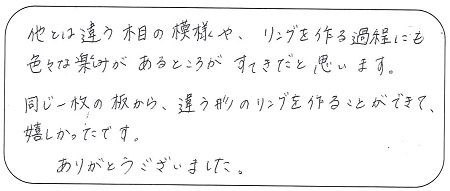 他とは違う木目の模様や、リングを作る過程にも
色々な楽しみがあるところがすてきだと思います。
同じ一枚の板から、違う形のリングを作ることができて、
嬉しかったです。
ありがとうございました。